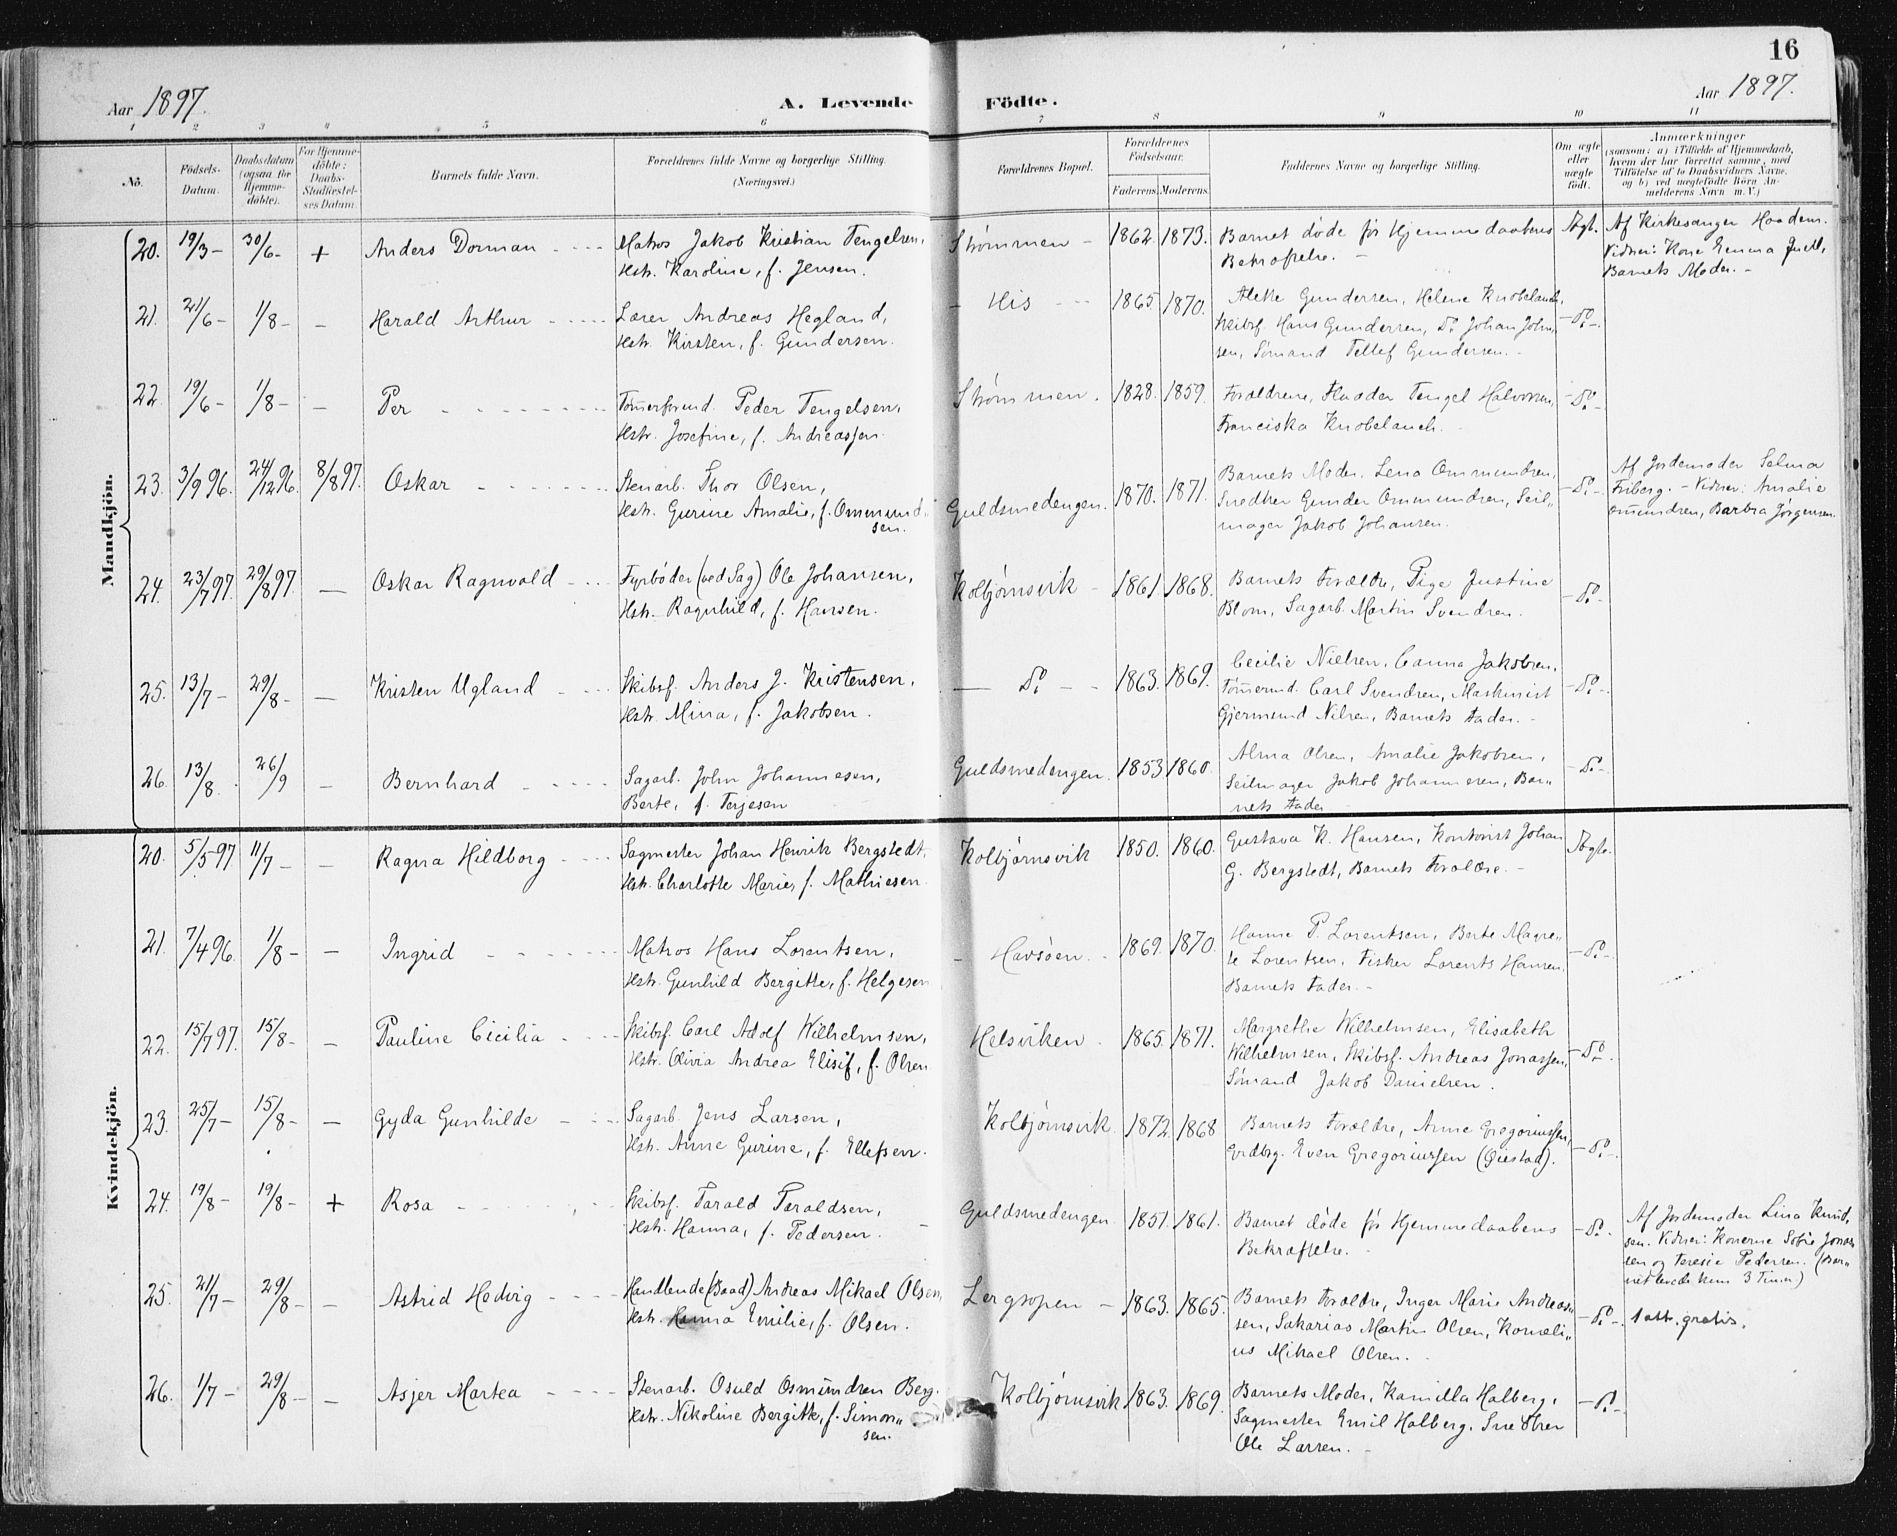 16
Aar 1897.
A. Levende Födte.
Aar 1897.
1 2 3 4 5 6 7 8 9 10 11
No.
Födsels-Datum.
Daabsdatum (ogsaa for Hjemme-döbte).
For Hjemme-döbte: Daabs-Stadfæstel-ses Datum.
Barnets fulde Navn.
Forældrenes fulde Navne og borgerlige Stilling. (Næringsvei.)
Forældrenes Bopæl.
Forældrenes Födselsaar.
Faderens. Moderens.
Faddernes Navne og borgerlige Stilling.
Om ægte eller uægte födt.
Anmærkninger (saasom: a) i Tilfælde af Hjemmedaab, hvem der har forrettet samme, med Tilföielse af to Daabsvidners Navne, og b) ved uægtefödte Börn An-melderens Navn m. V.)
Mandkjön.
20. 19/3 - 30/6 - + Anders Dorman Matros Jakob Kristian Tengelsen, Strømmen - 1862. 1873. Barnet døde før Hjemmedaabens Ægt. Af Kirkesanger Haadem.
Hstr. Karoline, f. Jensen. Bekræftelse. - Vidner: Kone Emma Juell,
Barnets Moder. -
21. 21/6 - 1/8 - - Harald Arthur Lærer Andreas Hegland, - His 1865 1870. Alette Gundersen, Helene Knobelauch, - do -
Hstr. Kirsten, f. Gundersen. Skibsf. Hans Gundersen, do Johan John-
sen, Sømand Tellef Gundersen. -
22. 19/6 - 1/8 - - Per Tømmermand. Peder Tengelsen, Strømmen. 1828. 1859. Forældrene, Tengel Halvorsen, - do -
Hstr. Josefine, f. Andreassen. Franciska Knobelauch. -
23. 3/9 96. 24/12 96. 8/8 97. Oskar Stenarb. Thor Olsen, Guldsmedengen. 1870. 1871. Barnets Moder, Lena Ommundsen, - do - Af Jordemoder Selma
Hstr. Gurine Amalie, f. Ommund- Snedker Gunder Ommundsen, Seil- Friberg. - Vidner: Amalie
sen. mager Jakob Johansen. Ommundsen, Barbra Jørgensen.
24. 23/7 97. 29/8 97. - Oskar Ragnvald Fyrbøder (ved Sag) Ole Johansen, Kolbjørnsvik - 1861. 1868. Barnets Forældre, Pige Justine - do -
Hstr. Ragnhild, f. Hansen. Blom, Sagarb. Martin Svendsen.
25. 13/7 - 29/8 - - Kristen Ugland Skibsf. Anders J. Kristensen, - do - 1863. 1869. Cecilie Nielsen, Canna Jakobsen, - do -
Hstr. Mina, f. Jakobsen. Tømmermd. Carl Svendsen, Maskinist
Gjermund Nilsen, Barnets Fader. -
26. 13/8. 26/9 - Bernhard Sagarb. John Johannesen, Guldsmedengen. 1853 1860. Alma Olsen, Amalie Jakobsen, - do -
Berte, f. Terjesen Seilmager Jakob Johannesen, Bar-
nets Fader
Kvindekjön.
20. 5/5 97 11/7 - - Ragna Hildborg Sagmester Johan Henrik Bergstedt, Kolbjørnsvik 1850. 1860. Gustava K. Hansen, Kontorist Johan Ægte.
Hstr. Charlotte Marie, f. Mathiesen. G. Bergstedt, Barnets Forældre. -
21. 7/4 96. 1/8 - - Ingrid Matros Hans Lorentsen, - Havsøen. 1869. 1870. Hanne P. Lorentsen, Berte Magre- - do -
Hstr. Gunhild Bergitte, f. Helgesen te Lorentsen, Fisker Lorents Hansen,
Barnets Fader. -
22. 15/7 97. 15/8 - - Pauline Cicilia Skibsf. Carl Adolf Wilhelmsen, Helsviken. 1865. 1871. Margrethe Wilhelmsen, Elisabeth - do -
Hstr. Olivia Andrea Elisif, f. Olsen Wilhelmsen, Skibsf. Andreas Jonassen,
Sømand Jakob Danielsen.
23. 25/7 - 15/8 - - Gyda Gunhilde Sagarb Jens Larsen, Kolbjørnsvik. 1872. 1868 Barnets Forældre, Anne Gregoriussen, - do -
Hstr. Anne Gurine, f. Ellefsen. Grdbrg. Even Gregoriussen (Øiestad).
24. 19/8 - 19/8 - + Rosa Skibsf. Tarald Taraldsen, Guldsmedengen 1851. 1861. Barnet døde før Hjemmedaabens - do - Af Jordemoder Lina Knud-
Hstr. Hanna, f. Pedersen. Bekræftelse. - sen. Vidner: Konerne Sofie Jonas-
sen og Teresie Pedersen. (Bar-
net levede kun 3 Timer)
25. 21/7 - 29/8 - - Astrid Hedvig Handlende (Baad) Andreas Mikael Olsen, Lergropen - 1863. 1865. Barnets Forældre, Inger Marie Andreas- - do - 1 att. gratis.
Hstr. Hanna Emilie, f. Olsen. sen, Sakarias Martin Olsen, Korneli-
us Mikael Olsen.
26. 1/7 - 29/8 - - Asjer Martea Stenarb. Osuld Osmundsen Berg. Kolbjørnsvik 1863. 1869. Barnets Moder, Kamilla Halberg, - do -
Hstr. Nikoline Bergitte, f. Simon- Sagmester Emil Halberg, Snedker
sen. Ole Larsen. -